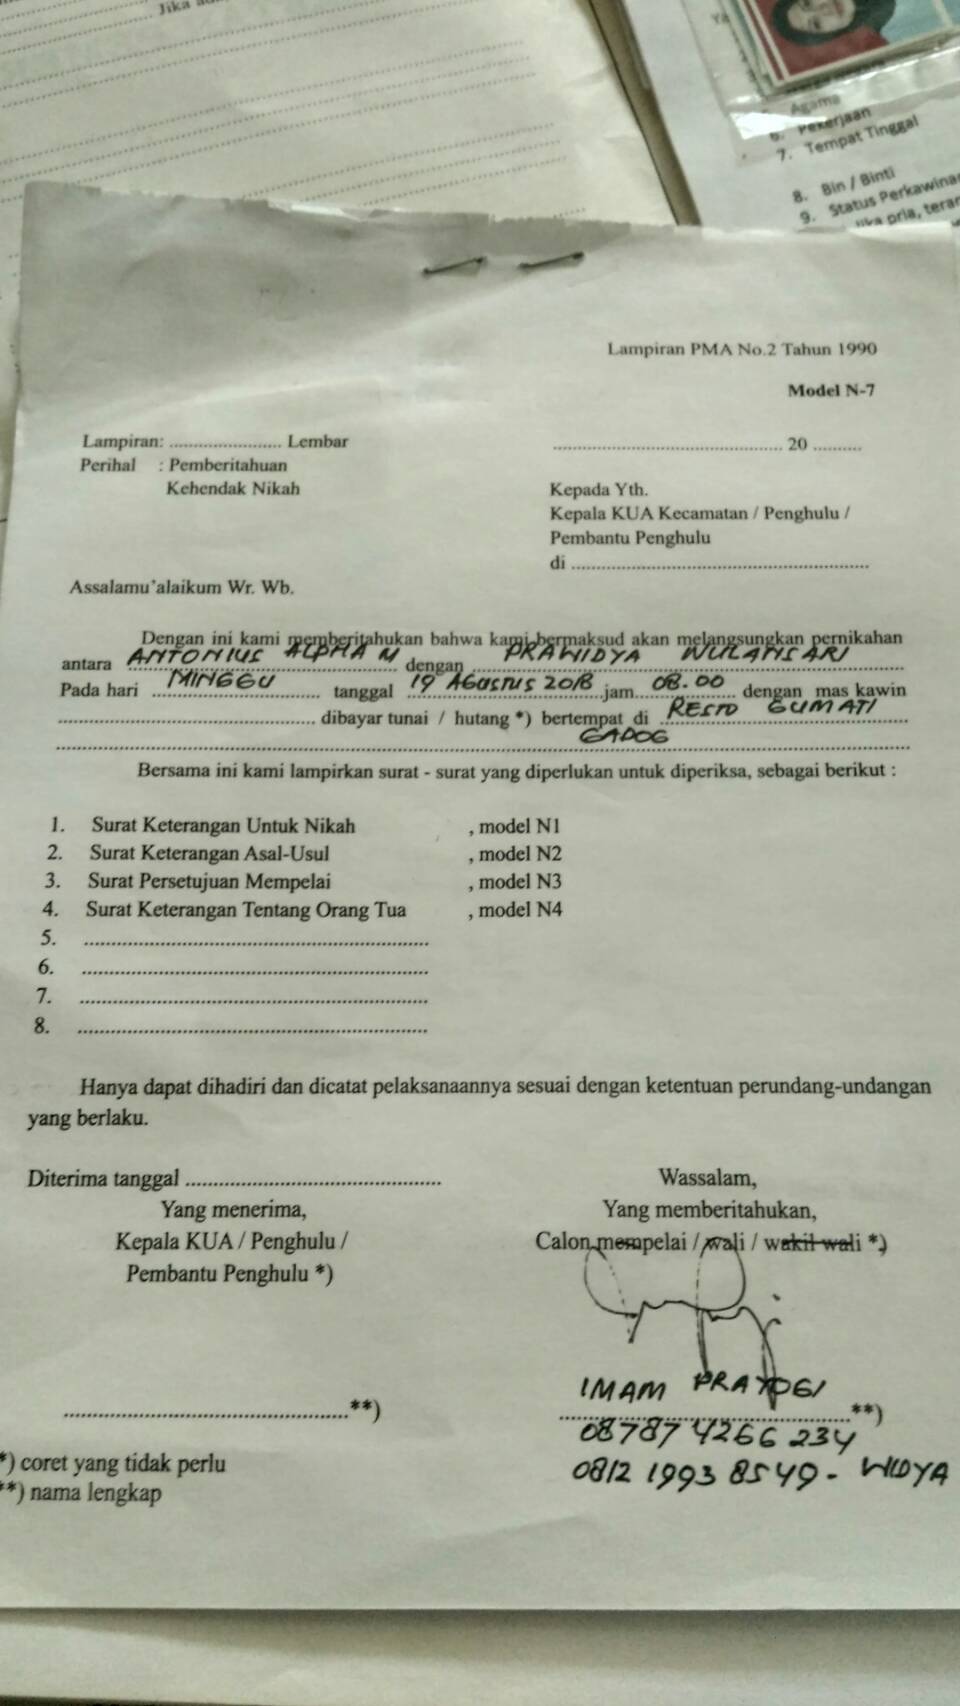 Jika
Ya
5. Agama
6. Pekerjaan
7. Tempat Tinggal
8. Bin / Binti
9. Status Perkawinan
jika pria, teran
Lampiran PMA No.2 Tahun 1990
Model N-7
Lampiran: ...................... Lembar
............................................. 20 .........
Perihal : Pemberitahuan
Kehendak Nikah
Kepada Yth.
Kepala KUA Kecamatan / Penghulu /
Pembantu Penghulu
di ..........................................................
Assalamu'alaikum Wr. Wb.
Dengan ini kami memberitahukan bahwa kami bermaksud akan melangsungkan pernikahan
antara ANTONIUS ALPHA M dengan PRAWIDYA WULANSARI
Pada hari MINGGU tanggal 19 AGUSTUS 2018 jam 08.00 dengan mas kawin
.................................................. dibayar tunai / hutang *) bertempat di RESTO GUMATI
GADOG
Bersama ini kami lampirkan surat - surat yang diperlukan untuk diperiksa, sebagai berikut :
1. Surat Keterangan Untuk Nikah , model N1
2. Surat Keterangan Asal-Usul , model N2
3. Surat Persetujuan Mempelai , model N3
4. Surat Keterangan Tentang Orang Tua , model N4
5. ..................................................................
6. ..................................................................
7. ..................................................................
8. ..................................................................
Hanya dapat dihadiri dan dicatat pelaksanaannya sesuai dengan ketentuan perundang-undangan
yang berlaku.
Diterima tanggal ................................................
Yang menerima,
Kepala KUA / Penghulu /
Pembantu Penghulu *)
......................................................**)
Wassalam,
Yang memberitahukan,
Calon mempelai / wali / wakil wali *)
IMAM PRAYOGI
......................................................**)
087874266234
0812 1993 8549 - WIDYA
*) coret yang tidak perlu
**) nama lengkap